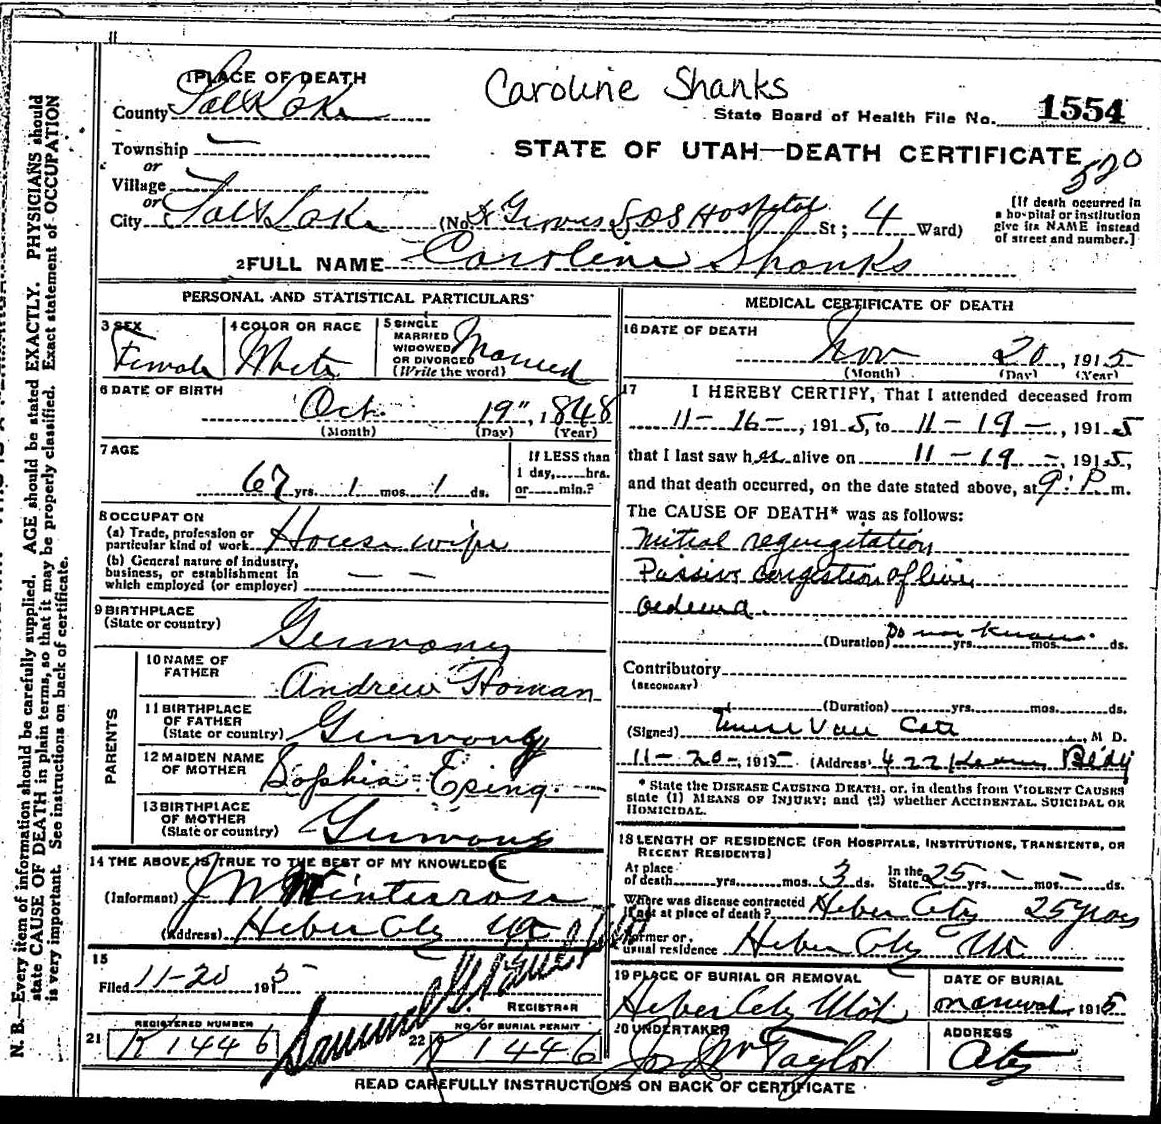 1 PLACE OF DEATH
Caroline Shanks
County Salt Lake
State Board of Health File No. 1554
Township —
STATE OF UTAH—DEATH CERTIFICATE
520
or
Village
or
City Salt Lake
(No. Dr Groves LDS Hospital St; 4 Ward)
[If death occurred in
a hospital or institution
give its NAME instead
of street and number.]
2 FULL NAME Caroline Shanks
PERSONAL AND STATISTICAL PARTICULARS
3 SEX
Female
4 COLOR OR RACE
White
5 SINGLE
MARRIED
WIDOWED
OR DIVORCED
(Write the word)
Married
6 DATE OF BIRTH
Oct. 19", 1848
(Month) (Day) (Year)
7 AGE
67 yrs. 1 mos. 1 ds.
If LESS than
1 day,.....hrs.
or.....min.?
8 OCCUPATION
(a) Trade, profession or
particular kind of work House wife
(b) General nature of industry,
business, or establishment in
which employed (or employer) — —
9 BIRTHPLACE
(State or country) Germany
PARENTS
10 NAME OF
FATHER Andrew Homan
11 BIRTHPLACE
OF FATHER
(State or country) Germany
12 MAIDEN NAME
OF MOTHER Sophia Eping
13 BIRTHPLACE
OF MOTHER
(State or country) Germany
14 THE ABOVE IS TRUE TO THE BEST OF MY KNOWLEDGE
(Informant) J W Winterose
(Address) Heber City Ut
15
Filed 11-20 1915
REGISTRAR
21 REGISTERED NUMBER
R 1446
22 NO. OF BURIAL PERMIT
R 1446
MEDICAL CERTIFICATE OF DEATH
16 DATE OF DEATH
Nov 20, 1915
(Month) (Day) (Year)
17 I HEREBY CERTIFY, That I attended deceased from
11-16-, 1915, to 11-19-, 1915
that I last saw her alive on 11-19-, 1915,
and that death occurred, on the date stated above, at 9:P.m.
The CAUSE OF DEATH* was as follows:
Mitral regurgitation
Passive congestion of liver
oedema.
(Duration) Do not know. yrs. mos. ds.
Contributory
(SECONDARY)
(Duration) yrs. mos. ds.
(Signed) Van Cott, M D.
11-20-, 1915 (Address) 422 Bldg
* State the DISEASE CAUSING DEATH, or, in deaths from VIOLENT CAUSES
state (1) MEANS OF INJURY; and (2) whether ACCIDENTAL, SUICIDAL OR
HOMICIDAL.
18 LENGTH OF RESIDENCE (FOR HOSPITALS, INSTITUTIONS, TRANSIENTS, OR
RECENT RESIDENTS)
At place
of death yrs. mos. 3 ds.
In the
State 25 yrs. — mos. — ds.
Where was disease contracted
if not at place of death? Heber City 25 years
Former or
usual residence Heber City Ut
19 PLACE OF BURIAL OR REMOVAL
Heber City Utah
DATE OF BURIAL
removal 1915
20 UNDERTAKER
Jos Wm Taylor
ADDRESS
City
READ CAREFULLY INSTRUCTIONS ON BACK OF CERTIFICATE
N. B.—Every item of information should be carefully supplied. AGE should be stated EXACTLY. PHYSICIANS should
state CAUSE OF DEATH in plain terms, so that it may be properly classified. Exact statement of OCCUPATION
is very important. See instructions on back of certificate.